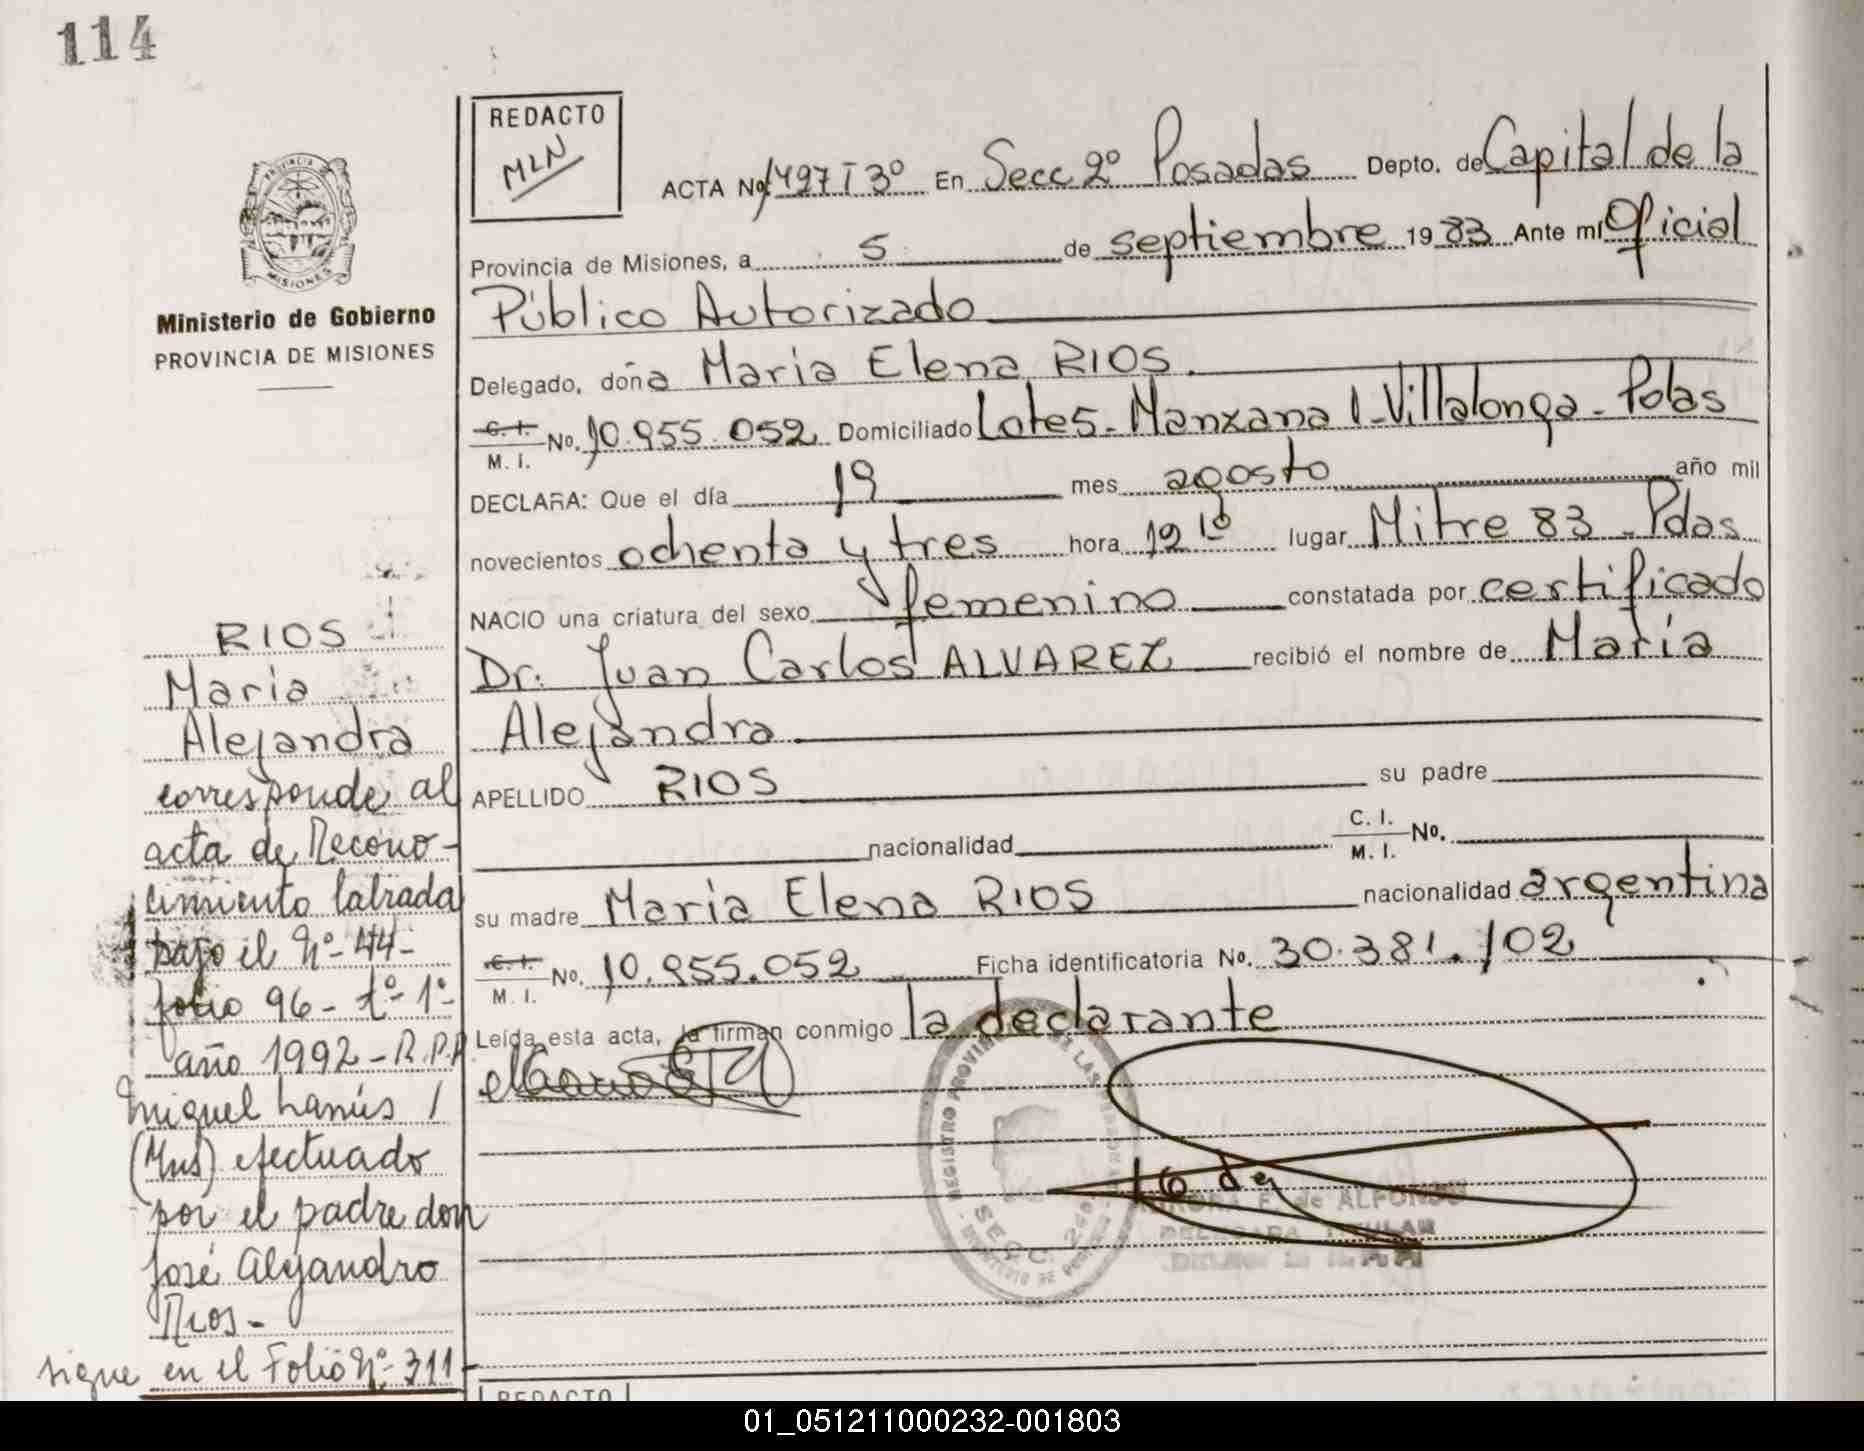 114
REDACTO
MLN
ACTA No 1497 T 3º En Secc 2º Posadas Depto. de Capital de la
Provincia de Misiones, a 5 de septiembre 1983 Ante mi Oficial
Público Autorizado
Delegado, doña Maria Elena RIOS.
C. I. M. I. No. 10.955.052 Domiciliado Lote 5 - Manzana 1 - Villalonga - Pdas
DECLARA: Que el día 19 mes agosto año mil
novecientos ochenta y tres hora 12 10 lugar Mitre 83 - Pdas
NACIO una criatura del sexo femenino constatada por certificado
Dr. Juan Carlos ALVAREZ recibió el nombre de María
Alejandra
APELLIDO RIOS su padre
nacionalidad C. I. M. I. No.
su madre Maria Elena RIOS nacionalidad argentina
C. I. M. I. No. 10.955.052 Ficha identificatoria No. 30.381.102
Leída esta acta, la firman conmigo la declarante
REGISTRO PROVINCIAL DE LAS
SECC. 2da.
F. de ALFONSO
TITULAR
Ministerio de Gobierno
PROVINCIA DE MISIONES
RIOS
Maria
Alejandra
corresponde al
acta de Recono-
cimiento labrada
bajo el Nº- 44-
folio 96- tº- 1º-
año 1992 - R.P.P.
Miguel Lanús /
(Mns) efectuado
por el padre don
José Alejandro
Rios-
sigue en el Folio Nº- 311
REDACTO
01_051211000232-001803